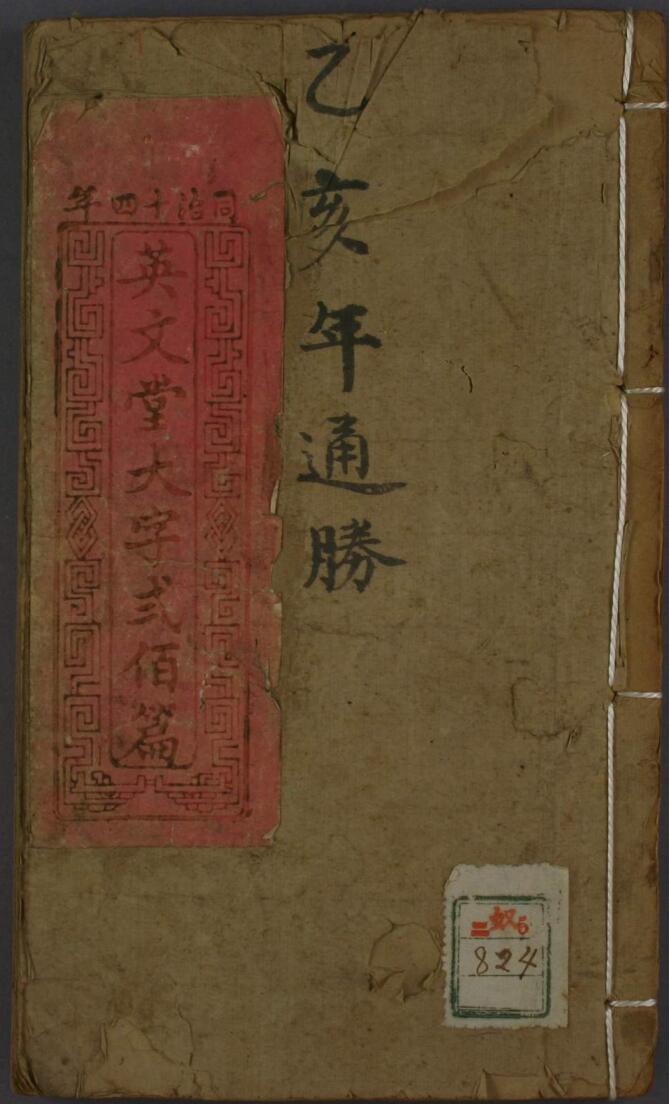 乙亥年通勝
同治十四年
英文堂大字弍佰篇
824